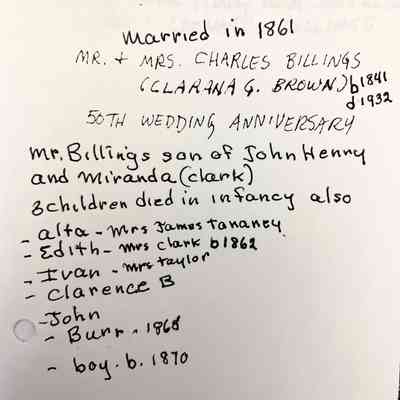 married in 1861
MR. + MRS. CHARLES BILLINGS
(CLARANA G. BROWN) b 1841
d 1932
50TH WEDDING ANNIVERSARY
Mr. Billings son of John Henry
and Miranda (Clark)
3 children died in infancy also
- alta - Mrs James Tananey
- Edith - Mrs Clark b 1862
- Ivan - Mrs Taylor
- Clarence B
- John
- Burr - 1868
- boy. b. 1870